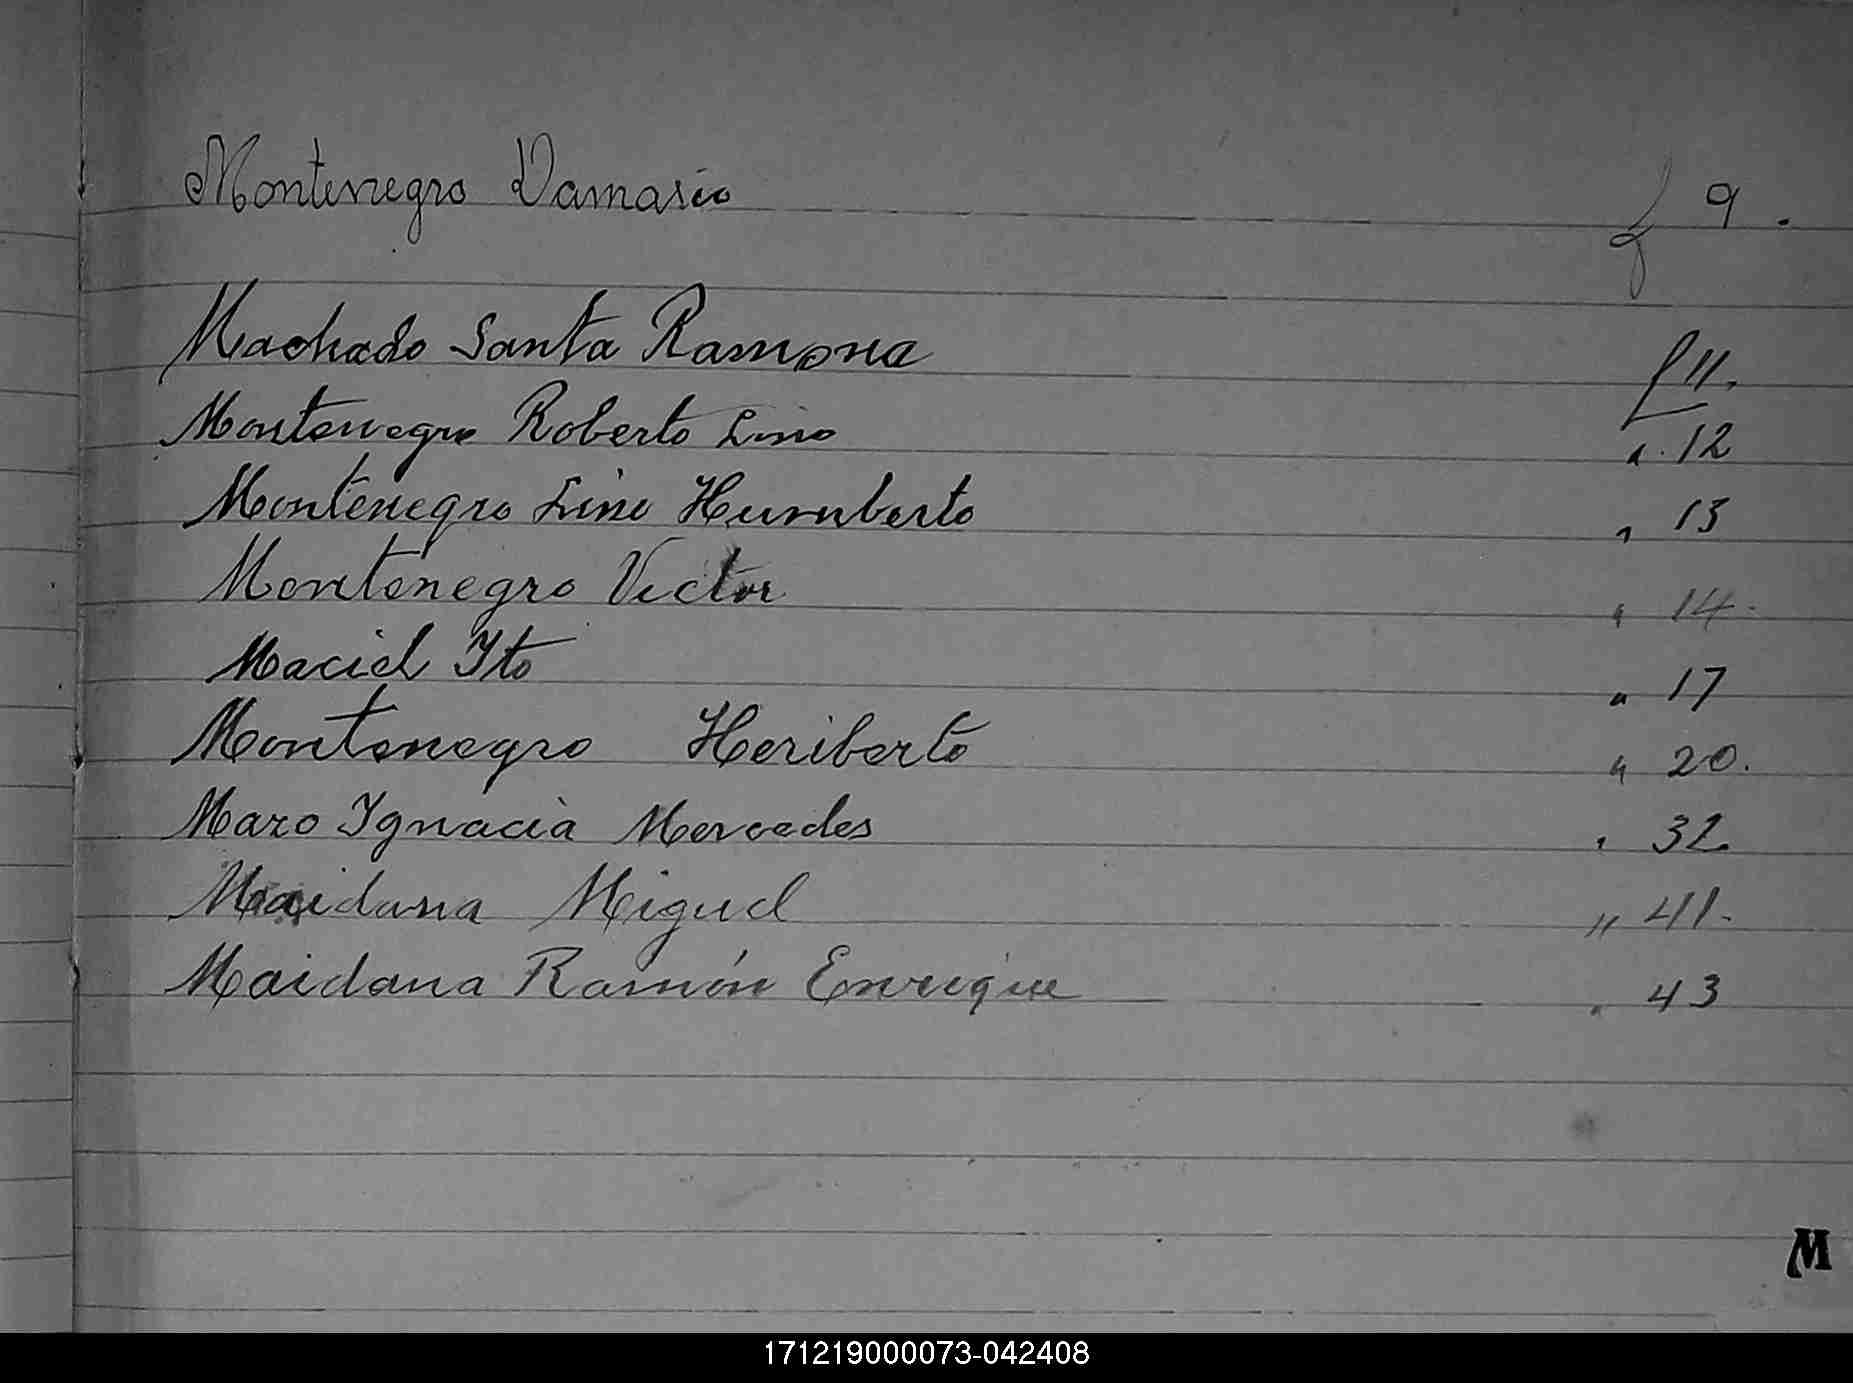 Montenegro Damasio f 9.
Machado Santa Ramona f 11.
Montenegro Roberto Lino " 12
Montenegro Lino Humberto " 13
Montenegro Victor " 14.
Maciel Ito " 17
Montenegro Heriberto " 20.
Mazo Ignacia Mercedes " 32.
Maidana Miguel " 41.
Maidana Ramón Enrique " 43
M
171219000073-042408